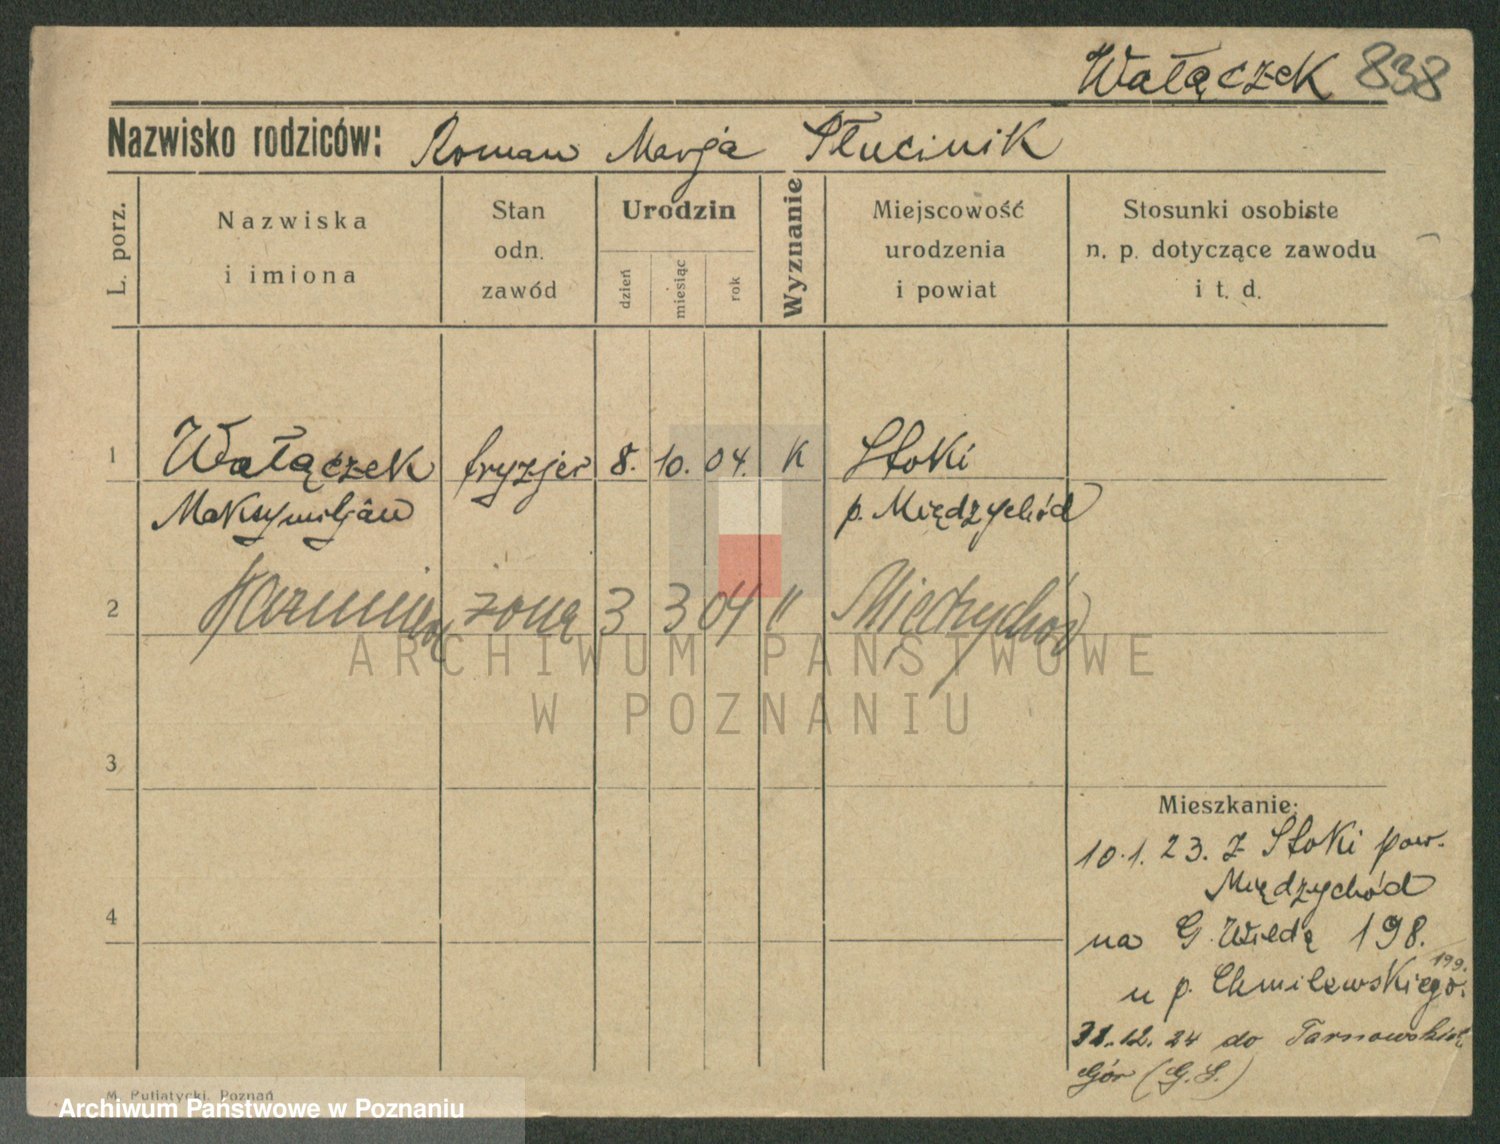 Wałączek 838
Nazwisko rodziców: Roman Marja Słucinik
L. porz.
Nazwiska
i imiona
Stan
odn.
zawód
Urodzin
dzień
miesiąc
rok
Wyznanie
Miejscowość
urodzenia
i powiat
Stosunki osobiste
n. p. dotyczące zawodu
i t. d.
1 Wałączek fryzjer 8. 10. 04. K Stoki
Maksymiljan p. Międzychód
2 żona 3 3 04 " Międzychód
ARCHIWUM PAŃSTWOWE
W POZNANIU
3
Mieszkanie:
10.1.23. z Stoki pow.
Międzychód
4
na G. Wildę 198.
199.
u p. Chmilewskiego.
31.12.24 do Tarnowskich
Gór (G.S.)
M. Putiatycki, Poznań
Archiwum Państwowe w Poznaniu